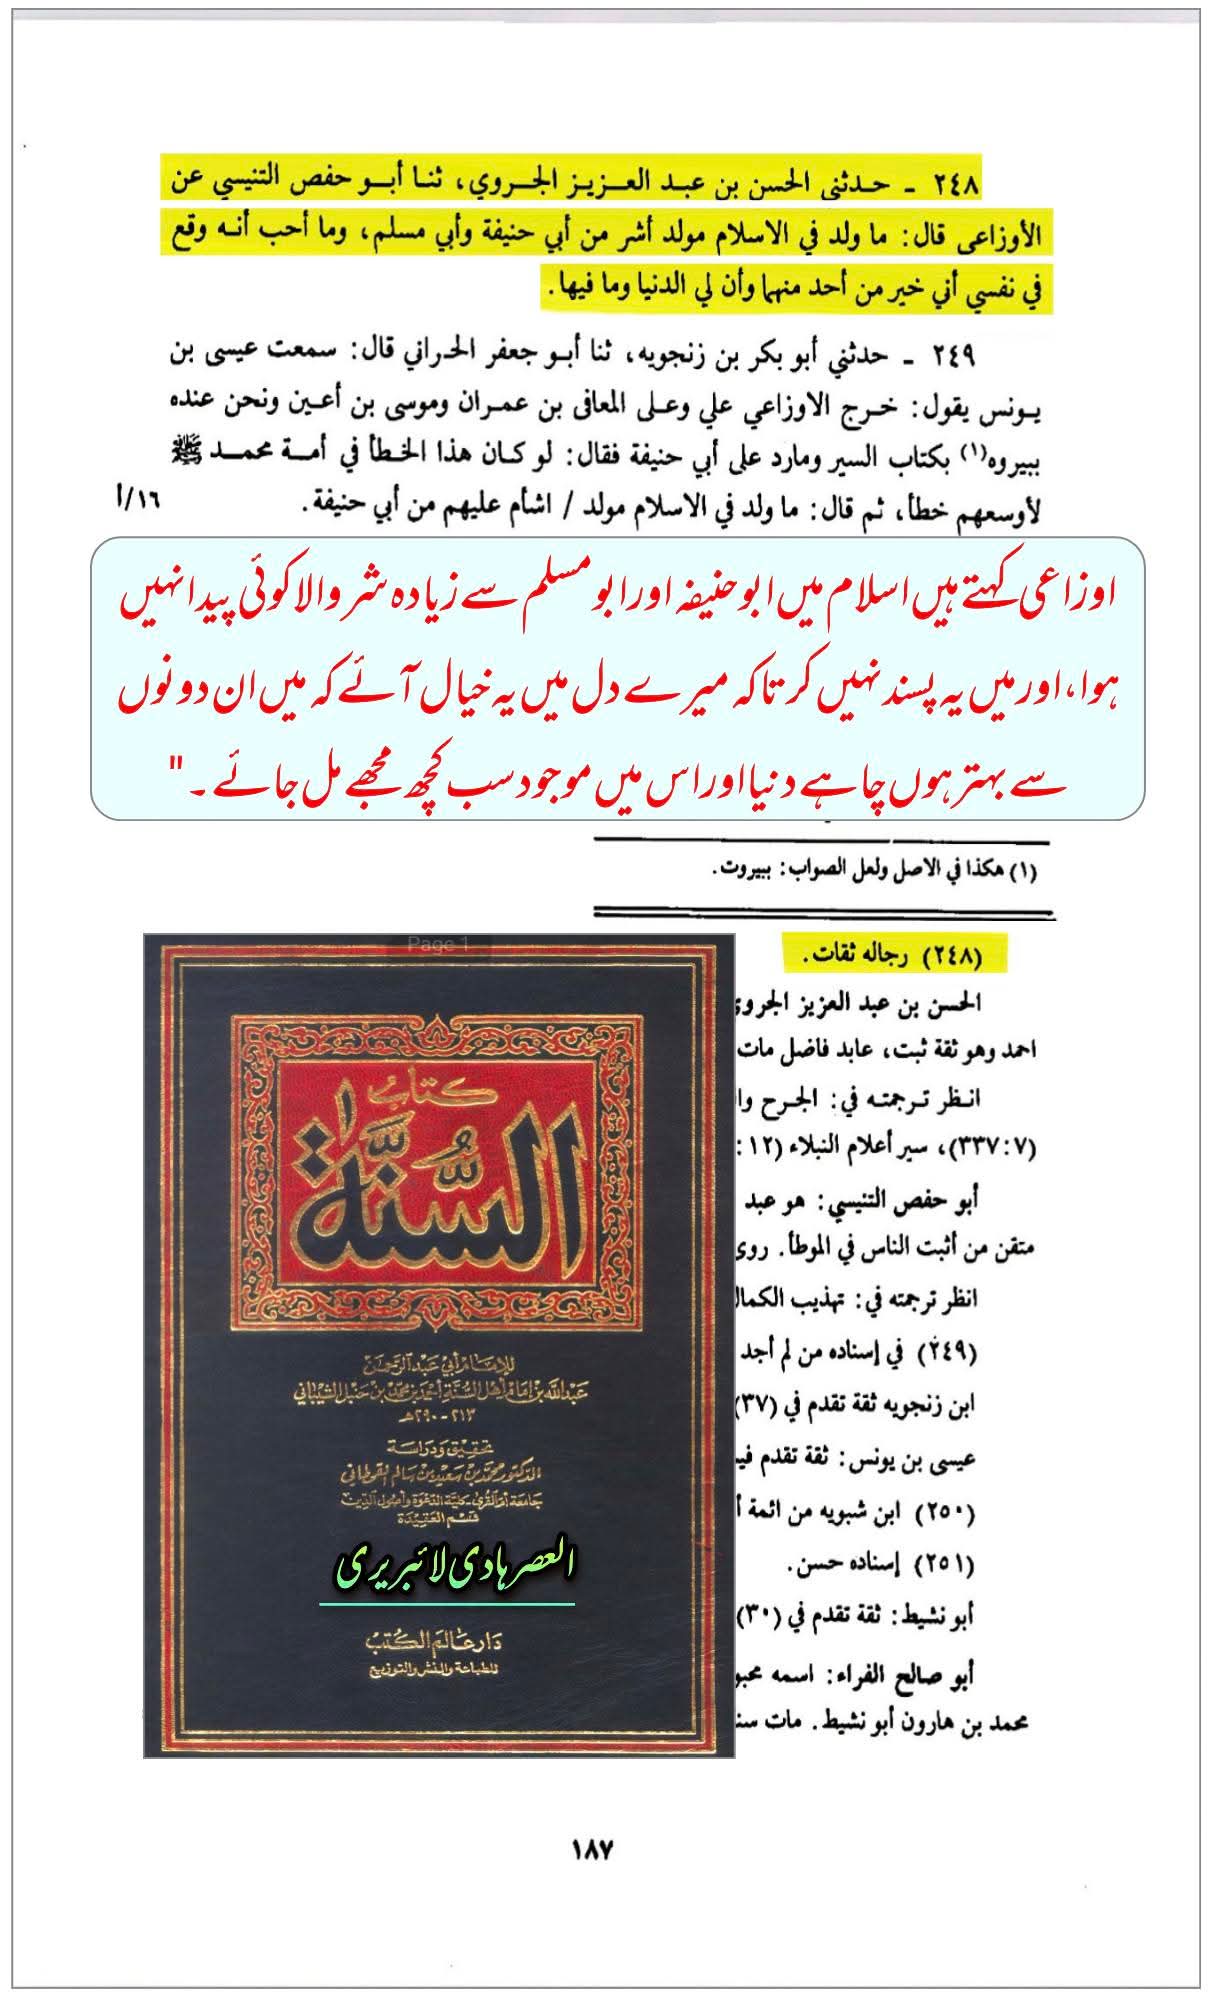 ٢٤٨ - حدثني الحسن بن عبد العزيز الجروي، ثنا أبو حفص التنيسي عن
الأوزاعي قال: ما ولد في الاسلام مولد أشر من أبي حنيفة وأبي مسلم، وما أحب أنه وقع
في نفسي أني خير من أحد منهما وأن لي الدنيا وما فيها.
٢٤٩ - حدثني أبو بكر بن زنجويه، ثنا أبو جعفر الحراني قال: سمعت عيسى بن
يونس يقول: خرج الاوزاعي علي وعلى المعافى بن عمران وموسى بن أعين ونحن عنده
ببيروه(١) بكتاب السير ومارد على أبي حنيفة فقال: لو كان هذا الخطأ في أمة محمد ﷺ
لأوسعهم خطأ، ثم قال: ما ولد في الاسلام مولد / اشأم عليهم من أبي حنيفة.
١٦/أ
اوزاعی کہتے ہیں اسلام میں ابو حنیفہ اور ابو مسلم سے زیادہ شر والا کوئی پیدا نہیں
ہوا، اور میں یہ پسند نہیں کرتا کہ میرے دل میں یہ خیال آئے کہ میں ان دونوں
سے بہتر ہوں چاہے دنیا اور اس میں موجود سب کچھ مجھے مل جائے ۔"
(١) هكذا في الاصل ولعل الصواب: ببيروت.
(٢٤٨) رجاله ثقات.
الحسن بن عبد العزيز الجروي
احمد وهو ثقة ثبت، عابد فاضل مات
انظر ترجمته في: الجرح وا
(٧:٣٣٧)، سير أعلام النبلاء (١٢:
أبو حفص التنيسي: هو عبد
متقن من أثبت الناس في الموطأ. روى
انظر ترجمته في: تهذيب الكمال
(٢٤٩) في إسناده من لم أجد
ابن زنجويه ثقة تقدم في (٣٧)
عيسى بن يونس: ثقة تقدم في
(٢٥٠) ابن شبويه من ائمة أ
(٢٥١) إسناده حسن.
أبو نشيط: ثقة تقدم في (٣٠)
أبو صالح الفراء: اسمه محبو
محمد بن هارون أبو نشيط. مات سنة
Page 1
كتاب
السنة
للإمام أبي عبد الرحمن
عبد الله بن إمام أهل السنة أحمد بن محمد بن حنبل الشيباني
٢١٣ - ٢٩٠هـ
تحقيق ودراسة
الدكتور محمد بن سعيد بن سالم القحطاني
جامعة أم القرى - كلية الدعوة وأصول الدين
قسم العقيدة
العصر ہادی لائبریری
دار عالم الكتب
للطباعة والنشر والتوزيع
١٨٧